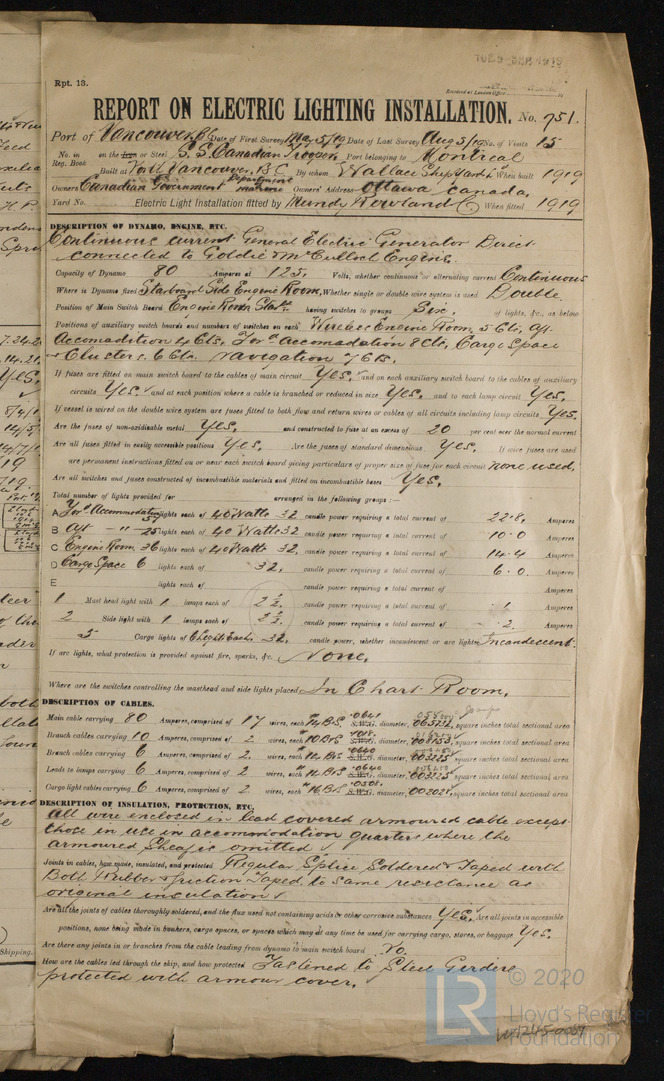 Rpt. 13.
Received at London Office
REPORT ON ELECTRIC LIGHTING INSTALLATION. No. 751.
Port of Vancouver BC Date of First Survey May 5/19 Date of Last Survey Aug 5/19 No. of Visits 15
No. in Reg. Book on the Iron or Steel S.S. Canadian Trooper Port belonging to Montreal
Built at North Vancouver, B C By whom Wallace Shipyards When built 1919
Owners Canadian Government Department marine Owners' Address Ottawa Canada.
Yard No. Electric Light Installation fitted by Mundy Rowland Co When fitted 1919
DESCRIPTION OF DYNAMO, ENGINE, ETC.
Continuous current General Electric Generator Direct
connected to Goldie & McCulloch Engine.
Capacity of Dynamo 80 Amperes at 125. Volts, whether continuous or alternating current Continuous
Where is Dynamo fixed Starboard Side Engine Room, Whether single or double wire system is used Double
Position of Main Switch Board Engine Room Starbd. having switches to groups Six. of lights, &c., as below
Positions of auxiliary switch boards and numbers of switches on each Wireless Engine Room, 5 Cts, aft
Accomadition 4 Cts, For'd accomadation 8 Cts, Cargo Space
& Clusters. 6 Cts. navigation 7 Cts.
If fuses are fitted on main switch board to the cables of main circuit Yes. and on each auxiliary switch board to the cables of auxiliary
circuits Yes. and at each position where a cable is branched or reduced in size Yes. and to each lamp circuit Yes.
If vessel is wired on the double wire system are fuses fitted to both flow and return wires or cables of all circuits including lamp circuits Yes.
Are the fuses of non-oxidizable metal Yes. and constructed to fuse at an excess of 20 per cent over the normal current
Are all fuses fitted in easily accessible positions Yes. Are the fuses of standard dimensions Yes. If wire fuses are used
are permanent instructions fitted on or near each switch board giving particulars of proper size of fuse for each circuit none used.
Are all switches and fuses constructed of incombustible materials and fitted on incombustible bases Yes.
Total number of lights provided for arranged in the following groups :—
A For'd Accomodation 57 lights each of 40 Watts 32 candle power requiring a total current of 22.8. Amperes
B Aft " " 25 lights each of 40 Watts 32 candle power requiring a total current of 10.0 Amperes
C Engine Room 36 lights each of 40 Watts 32. candle power requiring a total current of 14.4 Amperes
D Cargo Space 6 lights each of 32. candle power requiring a total current of 6.0. Amperes
E lights each of candle power requiring a total current of Amperes
1 Mast head light with 1 lamps each of 2 1/2 candle power requiring a total current of .1 Amperes
2 Side light with 1 lamps each of 2 1/2 candle power requiring a total current of .2 Amperes
5 Cargo lights of 6 light Each. 32. candle power, whether incandescent or arc lights Incandescent.
If arc lights, what protection is provided against fire, sparks, &c. None.
Where are the switches controlling the masthead and side lights placed In Chart Room.
DESCRIPTION OF CABLES.
Main cable carrying 80 Amperes, comprised of 17 wires, each 14 BS .0641 S.W.G. diameter, square inches total sectional area
Branch cables carrying 10 Amperes, comprised of 2 wires, each 10 BS S.W.G. diameter, square inches total sectional area
Branch cables carrying 6 Amperes, comprised of 2. wires, each 14 BS .0640 S.W.G. diameter, .003225 square inches total sectional area
Leads to lamps carrying 6 Amperes, comprised of 2 wires, each 14 BS .0640 S.W.G. diameter, .003225 square inches total sectional area
Cargo light cables carrying 6 Amperes, comprised of 2 wires, each 16 BS .0508 S.W.G. diameter, square inches total sectional area
DESCRIPTION OF INSULATION, PROTECTION, ETC.
All wire enclosed in lead covered armoured cable except
those in use in accomodation quarters where the
armoured Sheaf is omitted
Joints in cables, how made, insulated, and protected Regular Splice Soldered & Taped with
Both Rubber & friction Taped to same resistance as
original insulation
Are all the joints of cables thoroughly soldered, and the flux used not containing acids or other corrosive substances Yes. Are all joints in accessible
positions, none being made in bunkers, cargo spaces, or spaces which may at any time be used for carrying cargo, stores, or baggage Yes.
Are there any joints in or branches from the cable leading from dynamo to main switch board No.
How are the cables led through the ship, and how protected Fastened to Steel Girders
protected with armour cover.
© 2020
LR
Lloyd's Register
Foundation